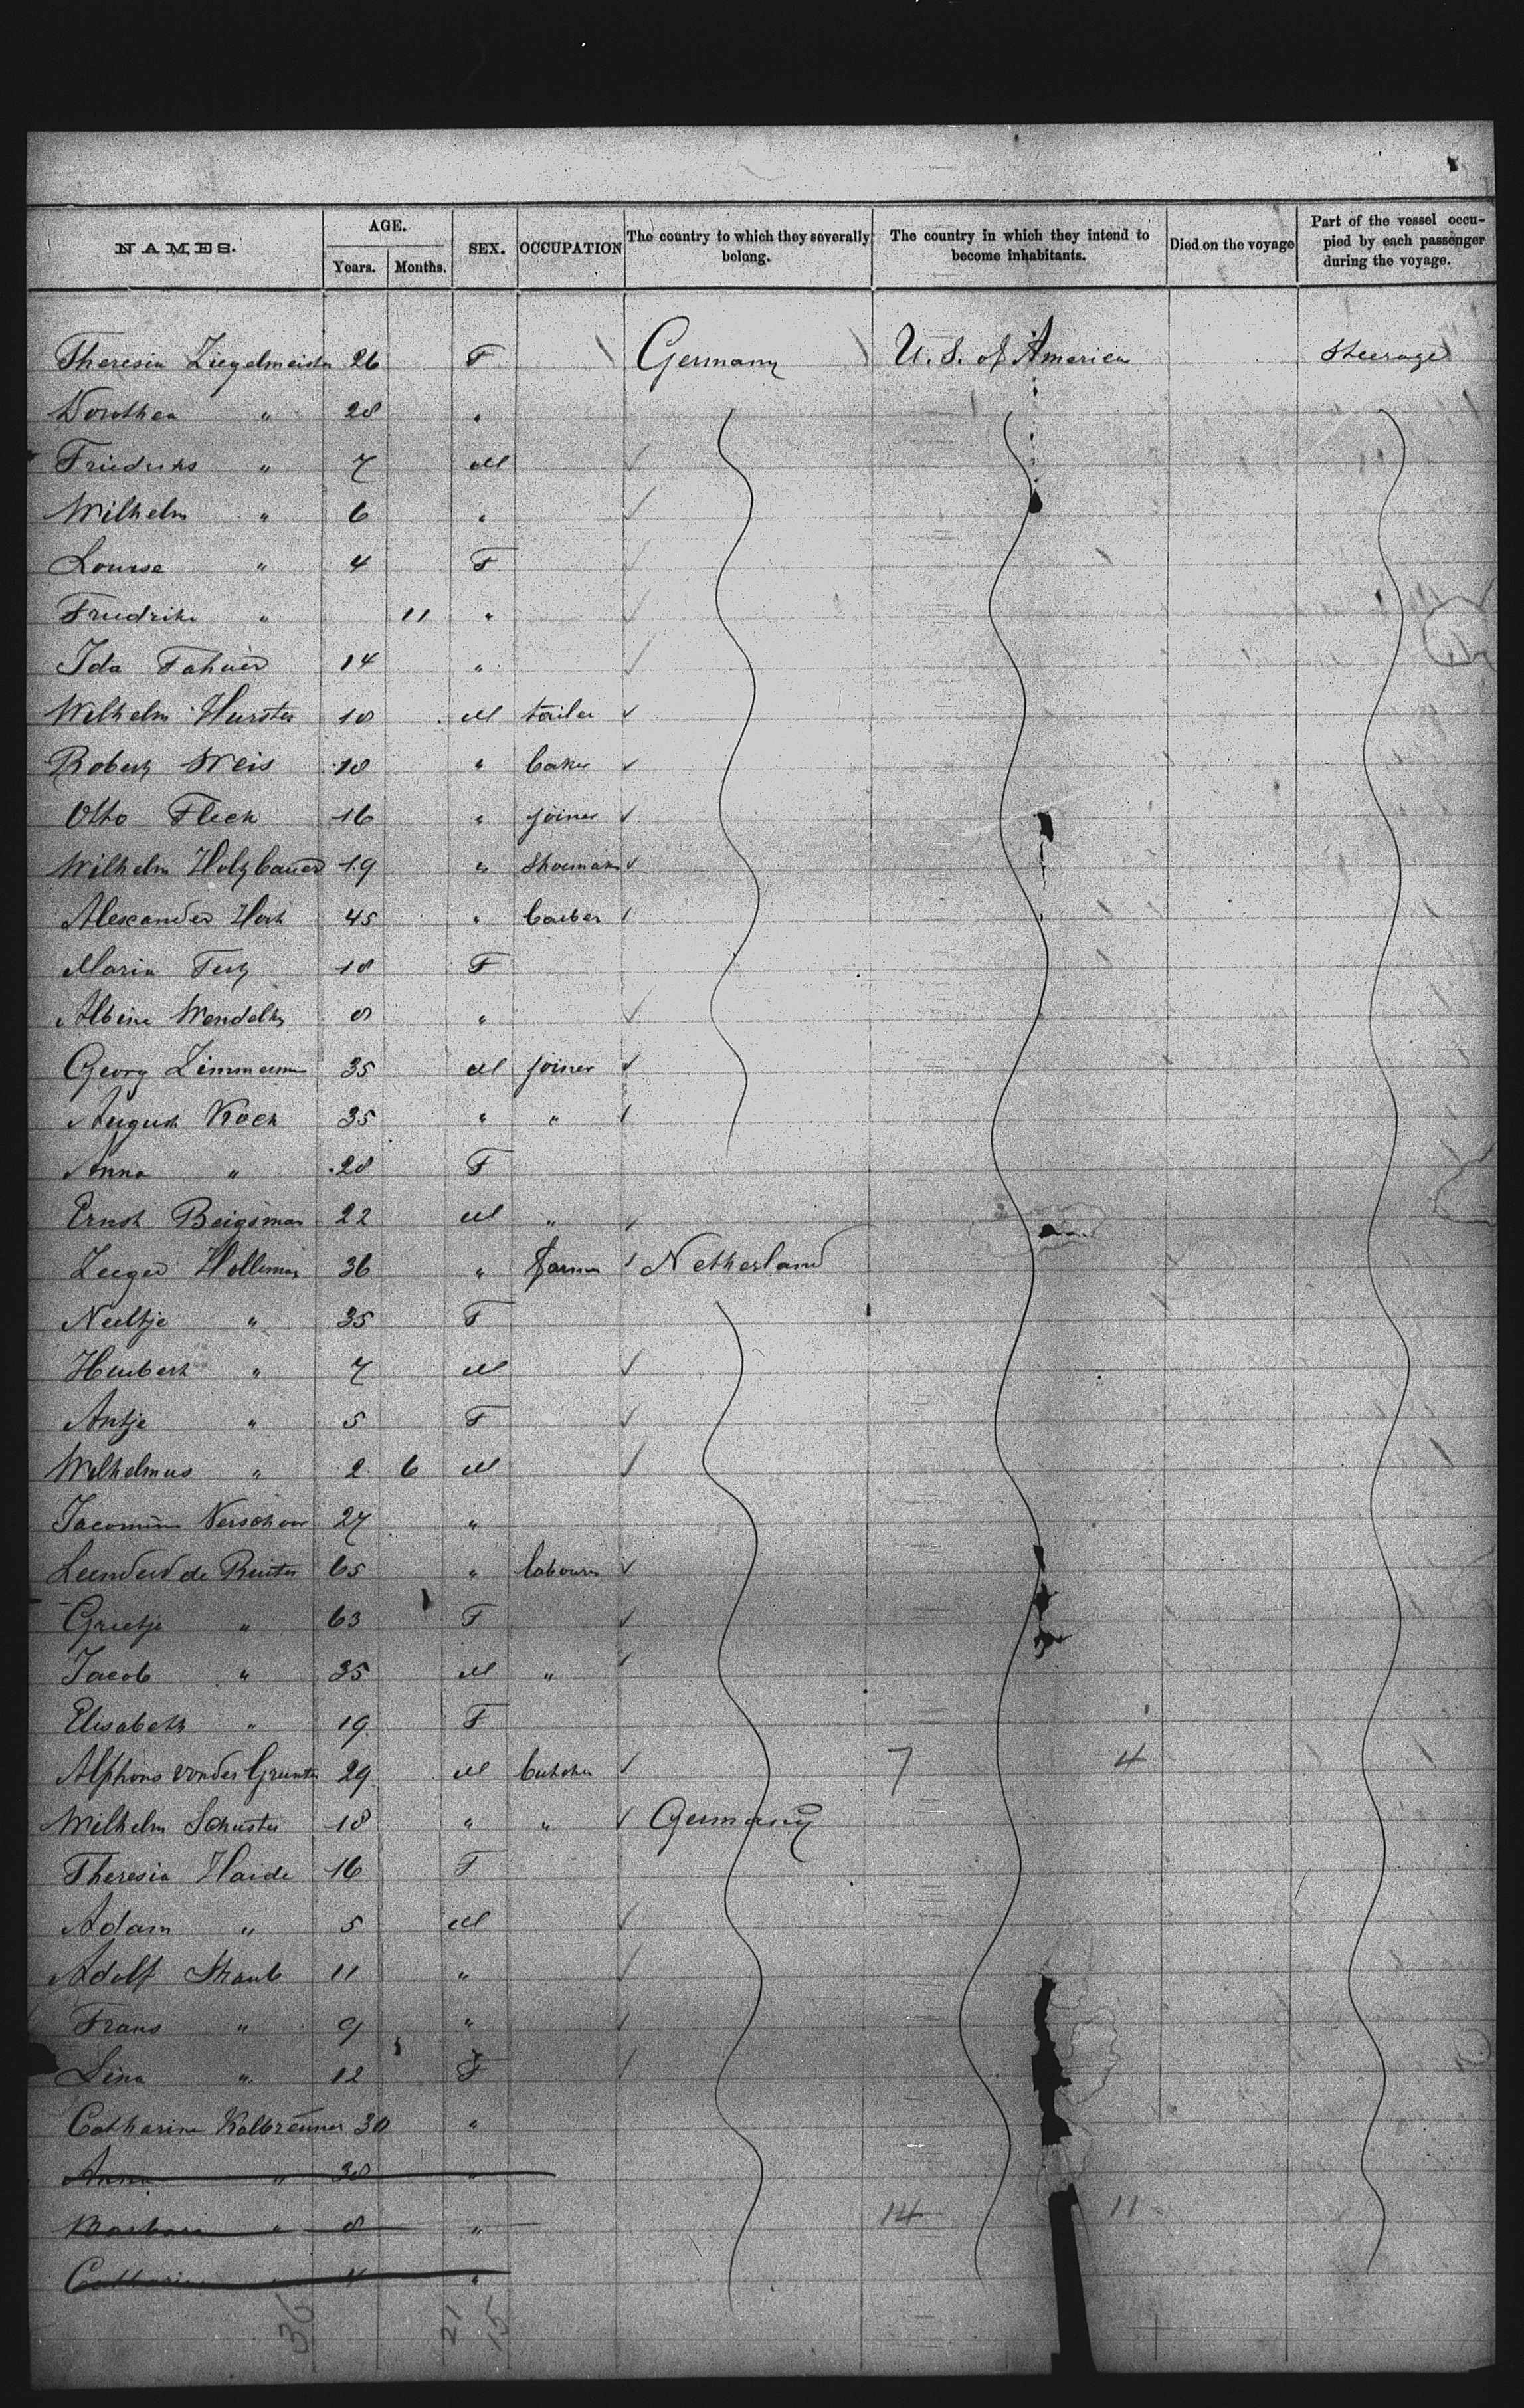 NAMES. AGE. Years. Months. SEX. OCCUPATION The country to which they severally belong. The country in which they intend to become inhabitants. Died on the voyage Part of the vessel occupied by each passenger during the voyage.
Theresia Ziegelmeister 26 F Germany U. S. of America Steerage
Dorothea " 28 "
Friedrichs " 7 M
Wilhelm " 6 "
Lourse " 4 F
Friedrike " 11 "
Ida Fahner 14 "
Wilhelm Hurster 18 M tailer
Robert Weis 18 " baker
Otto Fleck 16 " joiner
Wilhelm Holzbauer 19 " Shoemaker
Alexander 45 " barber
Maria 18 F
Albine 8 "
Georg Zimmermann 35 M joiner
August Koch 35 " "
Anna " 28 F
Ernst 22 M "
Zeeger Holleman 36 " farmer Netherland
Neeltje " 35 F
Huibert " 7 M
Antje " 5 F
Wilhelmus " 2 6 M
Jacomina Verschoor 27 "
Leendert de Ruiter 65 " labourer
Grietje " 63 F
Jacob " 35 M "
Elisabeth " 19 F
Alphons von der 29 M butcher 7 4
Wilhelm Schuster 18 " " Germany
Theresia Haide 16 F
Adam " 5 M
Adolf Straub 11 "
Frans " 9 "
Lina " 12 F
Catharina Kalbrenner 30 "
Anna " 38 "
Barbara " 8 " 14 11
Catharina " 4 "
36 21 15